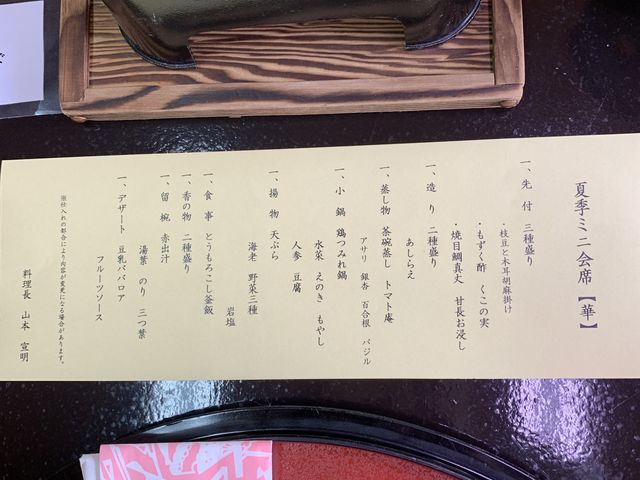 夏季ミニ会席【華】
一、先　付　三種盛り
・枝豆と木耳胡麻掛け
・もずく酢　くこの実
・焼目鯛真丈　甘長お浸し
一、造　り　二種盛り
あしらえ
一、蒸し物　茶碗蒸し　トマト庵
アサリ　銀杏　百合根　バジル
一、小　鍋　鶏つみれ鍋
水菜　えのき　もやし
人参　豆腐
一、揚　物　天ぷら
海老　野菜三種
岩塩
一、食　事　とうもろこし釜飯
一、香の物　二種盛り
一、留　椀　赤出汁
湯葉　のり　三つ葉
一、デザート　豆乳ババロア
フルーツソース
※仕入れの都合により内容が変更になる場合があります。
料理長　山本　宣明